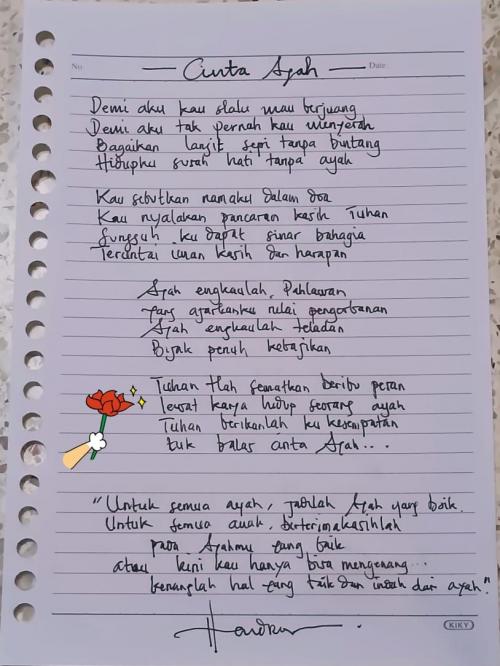 No.
Date
— Cinta Ayah —
Demi aku kau slalu mau berjuang
Demi aku tak pernah kau menyerah
Bagaikan langit sepi tanpa bintang
Hidupku susah hati tanpa ayah
Kau sebutkan namaku dalam doa
Kau nyalakan pancaran kasih Tuhan
Sungguh ku dapat sinar bahagia
Teruntai iman kasih dan harapan
Ayah engkaulah Pahlawan
yang ajarkanku nilai pengorbanan
Ayah engkaulah teladan
Bijak penuh kebajikan
Tuhan tlah sematkan beribu peran
lewat karya hidup seorang ayah
Tuhan berikanlah ku kesempatan
tuk balas cinta Ayah...
"Untuk semua ayah, jadilah Ayah yang baik.
Untuk semua anak, berterimakasihlah
pada Ayahmu yang baik
atau kini kau hanya bisa mengenang...
kenanglah hal yang baik dan indah dari ayah".
KIKY